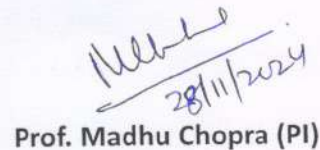 28/11/2024
Prof. Madhu Chopra (PI)